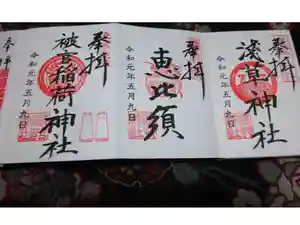 奉拝
浅草神社
令和元年五月九日
奉拝
恵比須
令和元年五月九日
奉拝
被官稲荷神社
令和元年五月九日
奉拝